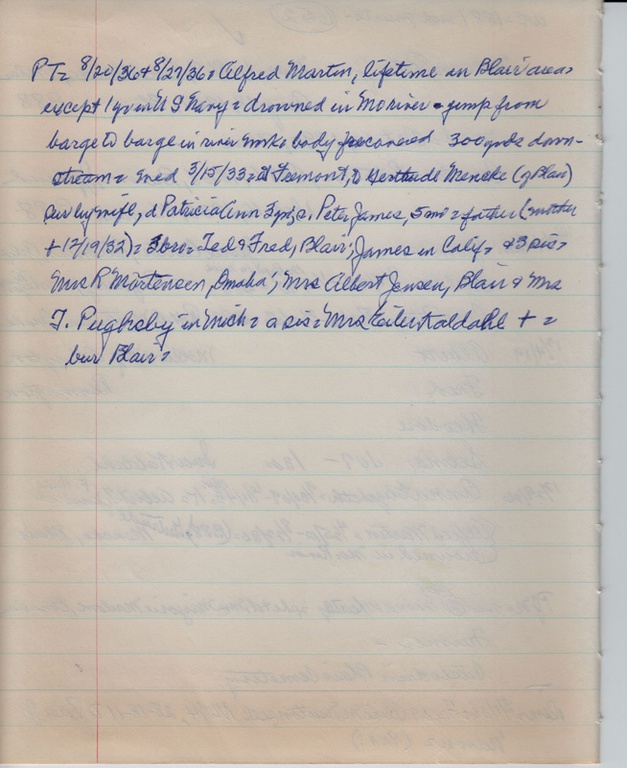 PT= 8/20/36 & 8/27/36= Alfred Martin, lifetime in Blair area=
except 1 yr in U S Navy = drowned in Mo river - jump from
barge to barge in river body recovered 300 yards down-
stream= med 3/15/33= at Fremont, to Gertrude Mencke (of Blair)
sur by wife, d Patricia Ann 3 yrs, Peter James, 5 mo = father (mother
+ 12/19/32) = 3 bro= Ted & Fred, Blair; James in Calif= & 3 sis=
Mrs R Mortensen, Omaha; Mrs Albert Jensen, Blair & Mrs
T. Pughsby in Mich = a sis= Mrs Eiler Kaldahl + =
bur Blair=